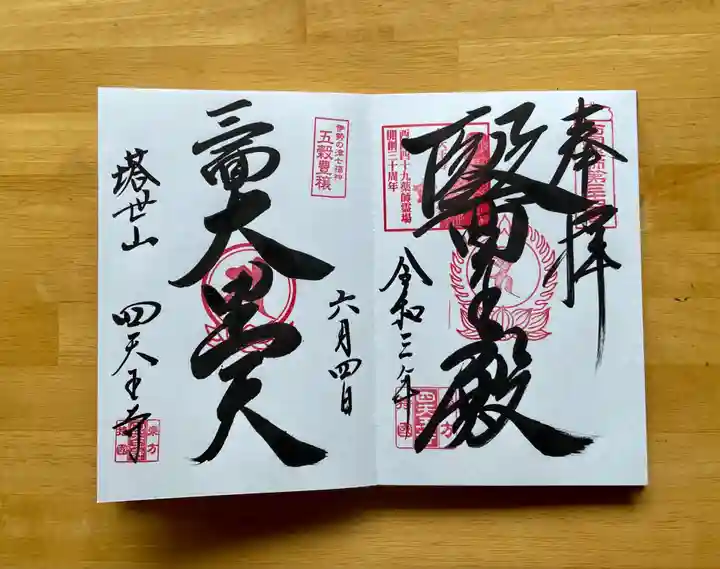 奉拝
醫王殿
西国四十九薬師霊場
開創三十周年
令和三年
四天王寺
六月四日
伊勢の津七福神
五穀豊穣
三面大黒天
塔世山
四天王寺
東方